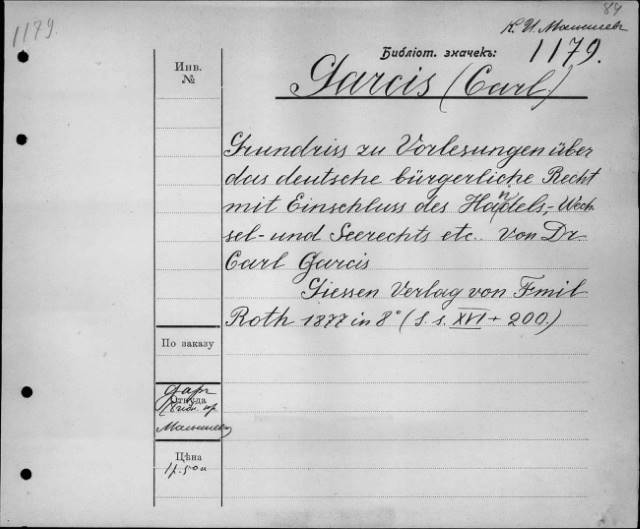 84
1179.
К. И. Малышев
Библіот. значекъ:
1179.
Инв.
№
Garcis (Carl)
Grundriss zu Vorlesungen über
das deutsche bürgerliche Recht
mit Einschluss des Handels-, Wech-
sel- und Seerechts etc. Von Dr.
Carl Garcis
Giessen Verlag von Emil
Roth 1877 in 8° (S. s. XVI + 200.)
По заказу
дар
Откуда
Малышев
Цѣна
1р. 50к